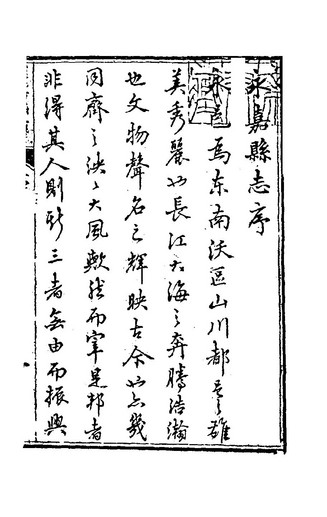 永嘉縣志序
永嘉為东南沃區山川都邑之雄
美秀麗以長江大海之奔騰浩瀚
也文物聲名之輝映古今以占幾
同齊之泱泱大風歟然而宰是邦者
非得其人則斯三者無由而振興